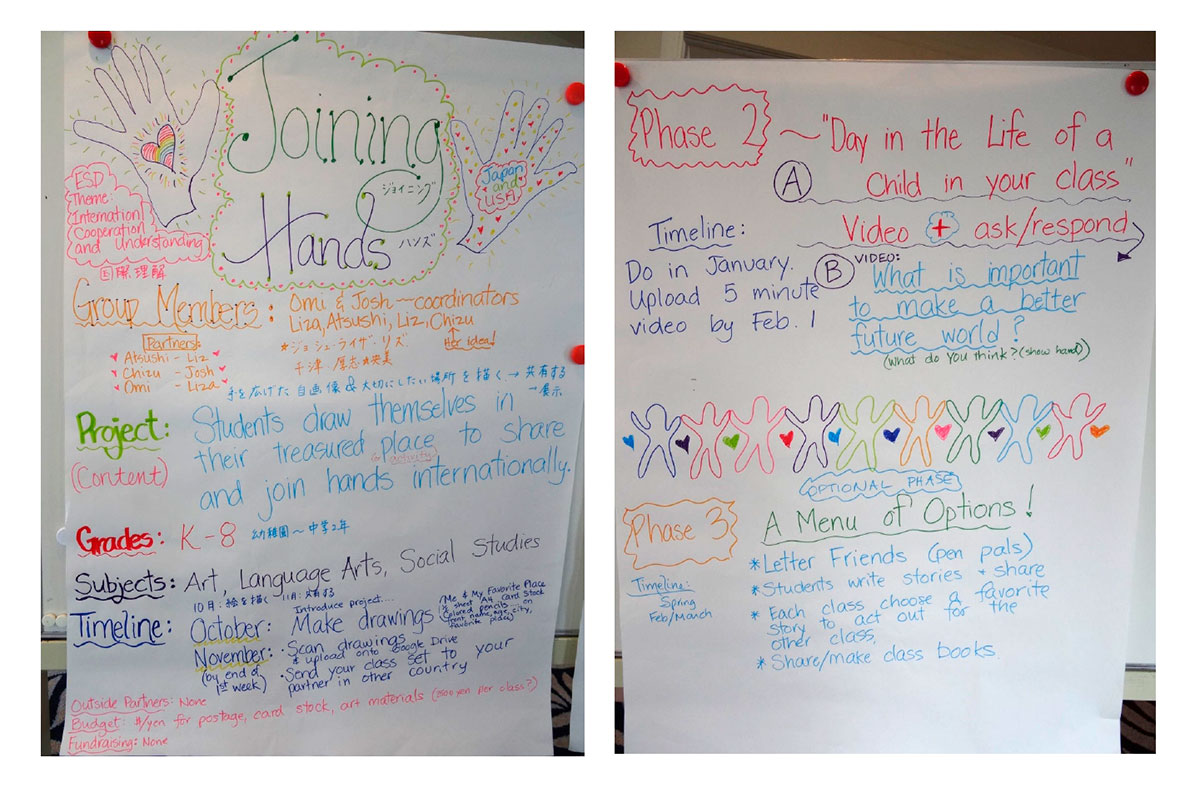 Joining
ジョイニング
Hands
ハンズ
Japan
and
USA
ESD
Theme:
International
Cooperation
and Understanding
国際理解
Group Members: Omi & Josh — coordinators
Liza, Atsushi, Liz, Chizu
Her idea!
*ジョシュ・ライザ・リズ
千津 厚志
Partners:
Atsushi - Liz
Chizu - Josh
Omi - Liza
手を広げた自画像&大切にしたい場所を描く→共有する
→展示
Project:
(Content)
Students draw themselves in
their treasured place to share
activity
and join hands internationally.
Grades: K-8 幼稚園〜中学2年
Subjects: Art, Language Arts, Social Studies
10月:絵を描く 11月:共有する
Timeline:
Introduce project....
October: Make drawings
(Me & My Favorite Place
½ sheet A4 card stock
colored pencils on
front, name, age, city,
favorite place)
November:
(by end of
1st week)
• Scan drawings
& upload onto Google Drive
• Send your class set to your
partner in other country
Outside Partners: None
Budget: $/yen for postage, card stock, art materials (2100 yen per class?)
Fundraising: None
Phase 2 ~ "Day in the Life of a
A Child in your class"
Video + ask/respond
Timeline:
Do in January.
Upload 5 minute
video by Feb. 1
B VIDEO:
What is important
to make a better
future world?
(What do you think? (show hand))
OPTIONAL PHASE
Phase 3 A Menu of Options!
Timeline:
Spring
Feb/March
*Letter Friends (pen pals)
*Students write stories + share
* Each class choose a favorite
story to act out for the
other class.
* Share/make class books.